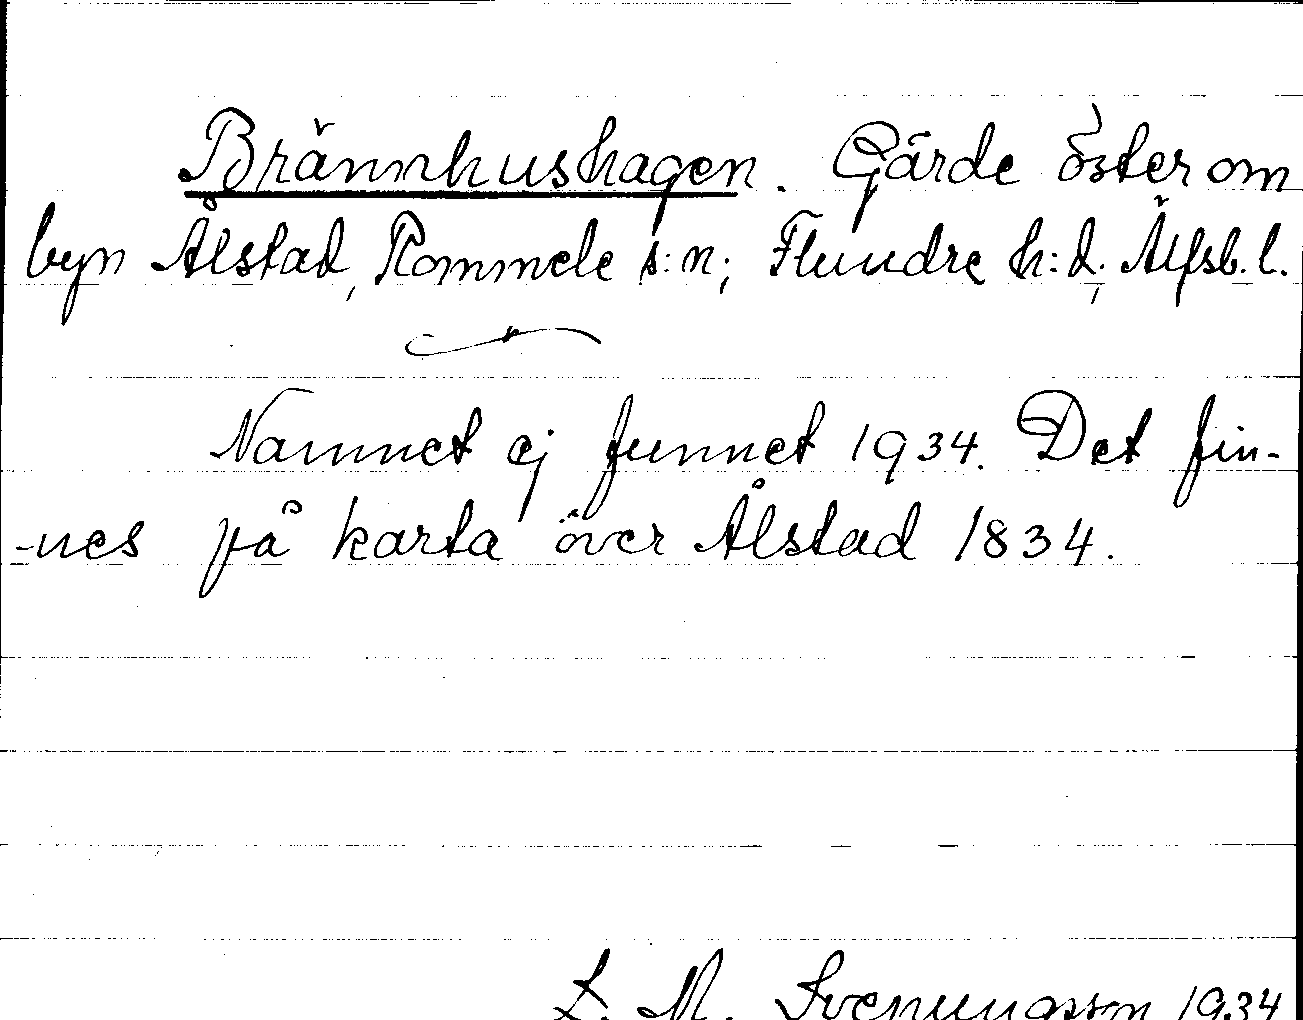 Brännhushagen. Gärde öster om
byn Ålstad, Rommele s:n; Flundre h:d; Älfsb. l.
Namnet ej funnet 1934. Det fin-
-nes på karta över Ålstad 1834.
L. M. Svenungsson 1934